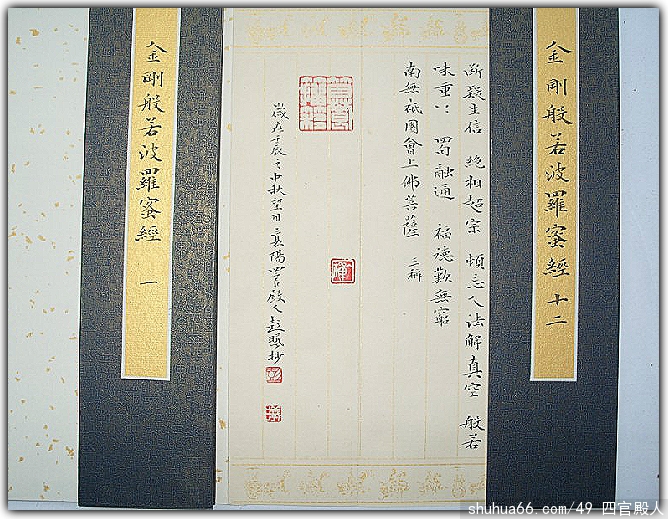 金剛般若波羅蜜經 十二
斷疑生信 絕相超宗 頓忘人法解真空 般若
味重〻 四句融通 福德歎無窮
南無祇園會上佛菩薩 三稱
歲在壬辰之中秋望日襄陽四官殿人抄
金剛般若波羅蜜經 一
shuhua66.com/49 四官殿人